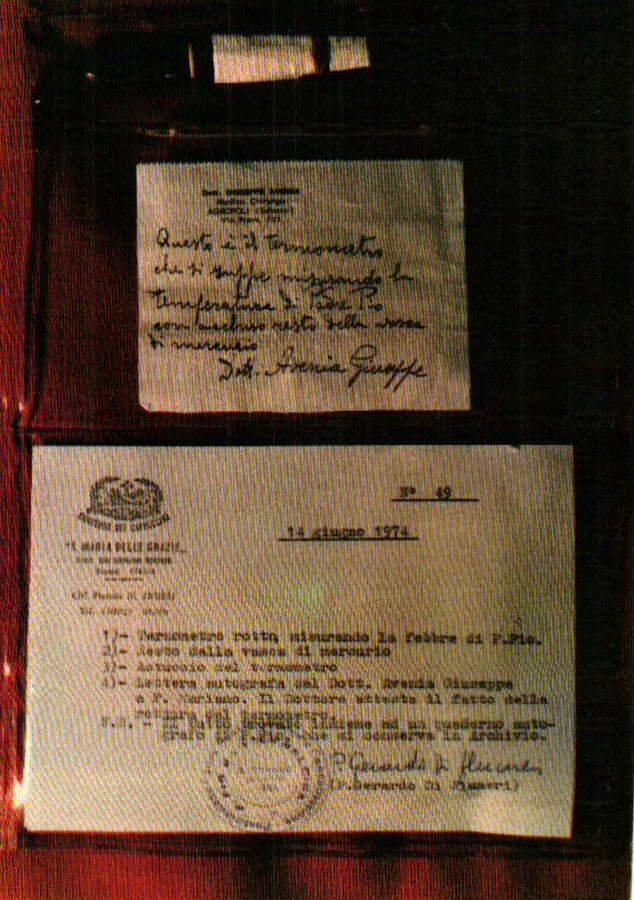 Dott. GIUSEPPE AVENIA
Medico Chirurgo
Questo è il termometro
che si ruppe misurando la
temperatura di Padre Pio
con accluso resto della vasca
di mercurio
Dott. Avenia Giuseppe
Nº 49
14 giugno 1974
"S. MARIA DELLE GRAZIE"
ITALIA
1)- Termometro rotto misurando la febbre di P.Pio.
2)- Resto della vasca di mercurio
3)- Astuccio del termometro
4)- Lettera autografa del Dott. Avenia Giuseppe
a P. Mariano. Il Dottore attesta il fatto della
N.B. - insieme ad un quaderno auto-
grafo di P.Pio, che si conserva in Archivio.
P. Gerardo Di Flumeri
(P.Gerardo Di Flumeri)